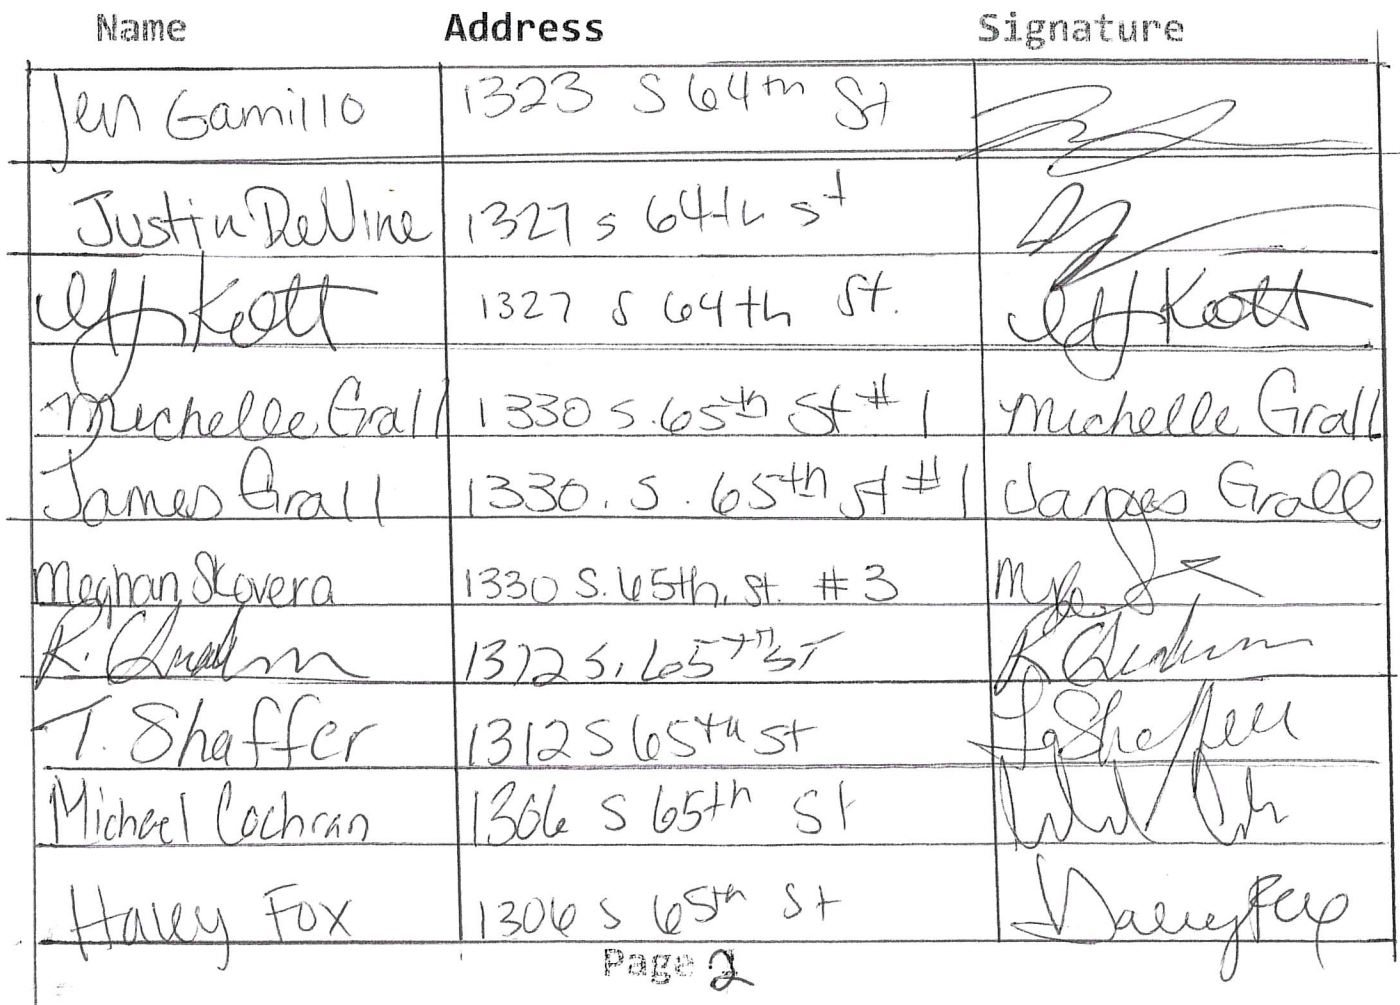 Name Address Signature
Jen Gamillo 1323 S 64th St
Justin DeVine 1327 s 64th st
Kott 1327 S 64th St. Kott
Michelle Grall 1330 S. 65th St #1 Michelle Grall
James Grall 1330. S. 65th St #1 James Grall
Meghan Skovera 1330 S. 65th. St. #3
R. 1312 S. 65TH ST R
T. Shaffer 1312 S 65TH St Shaffer
Michael Cochran 1306 S 65th St
Haley Fox 1306 S 65th St Haley Fox
Page 2